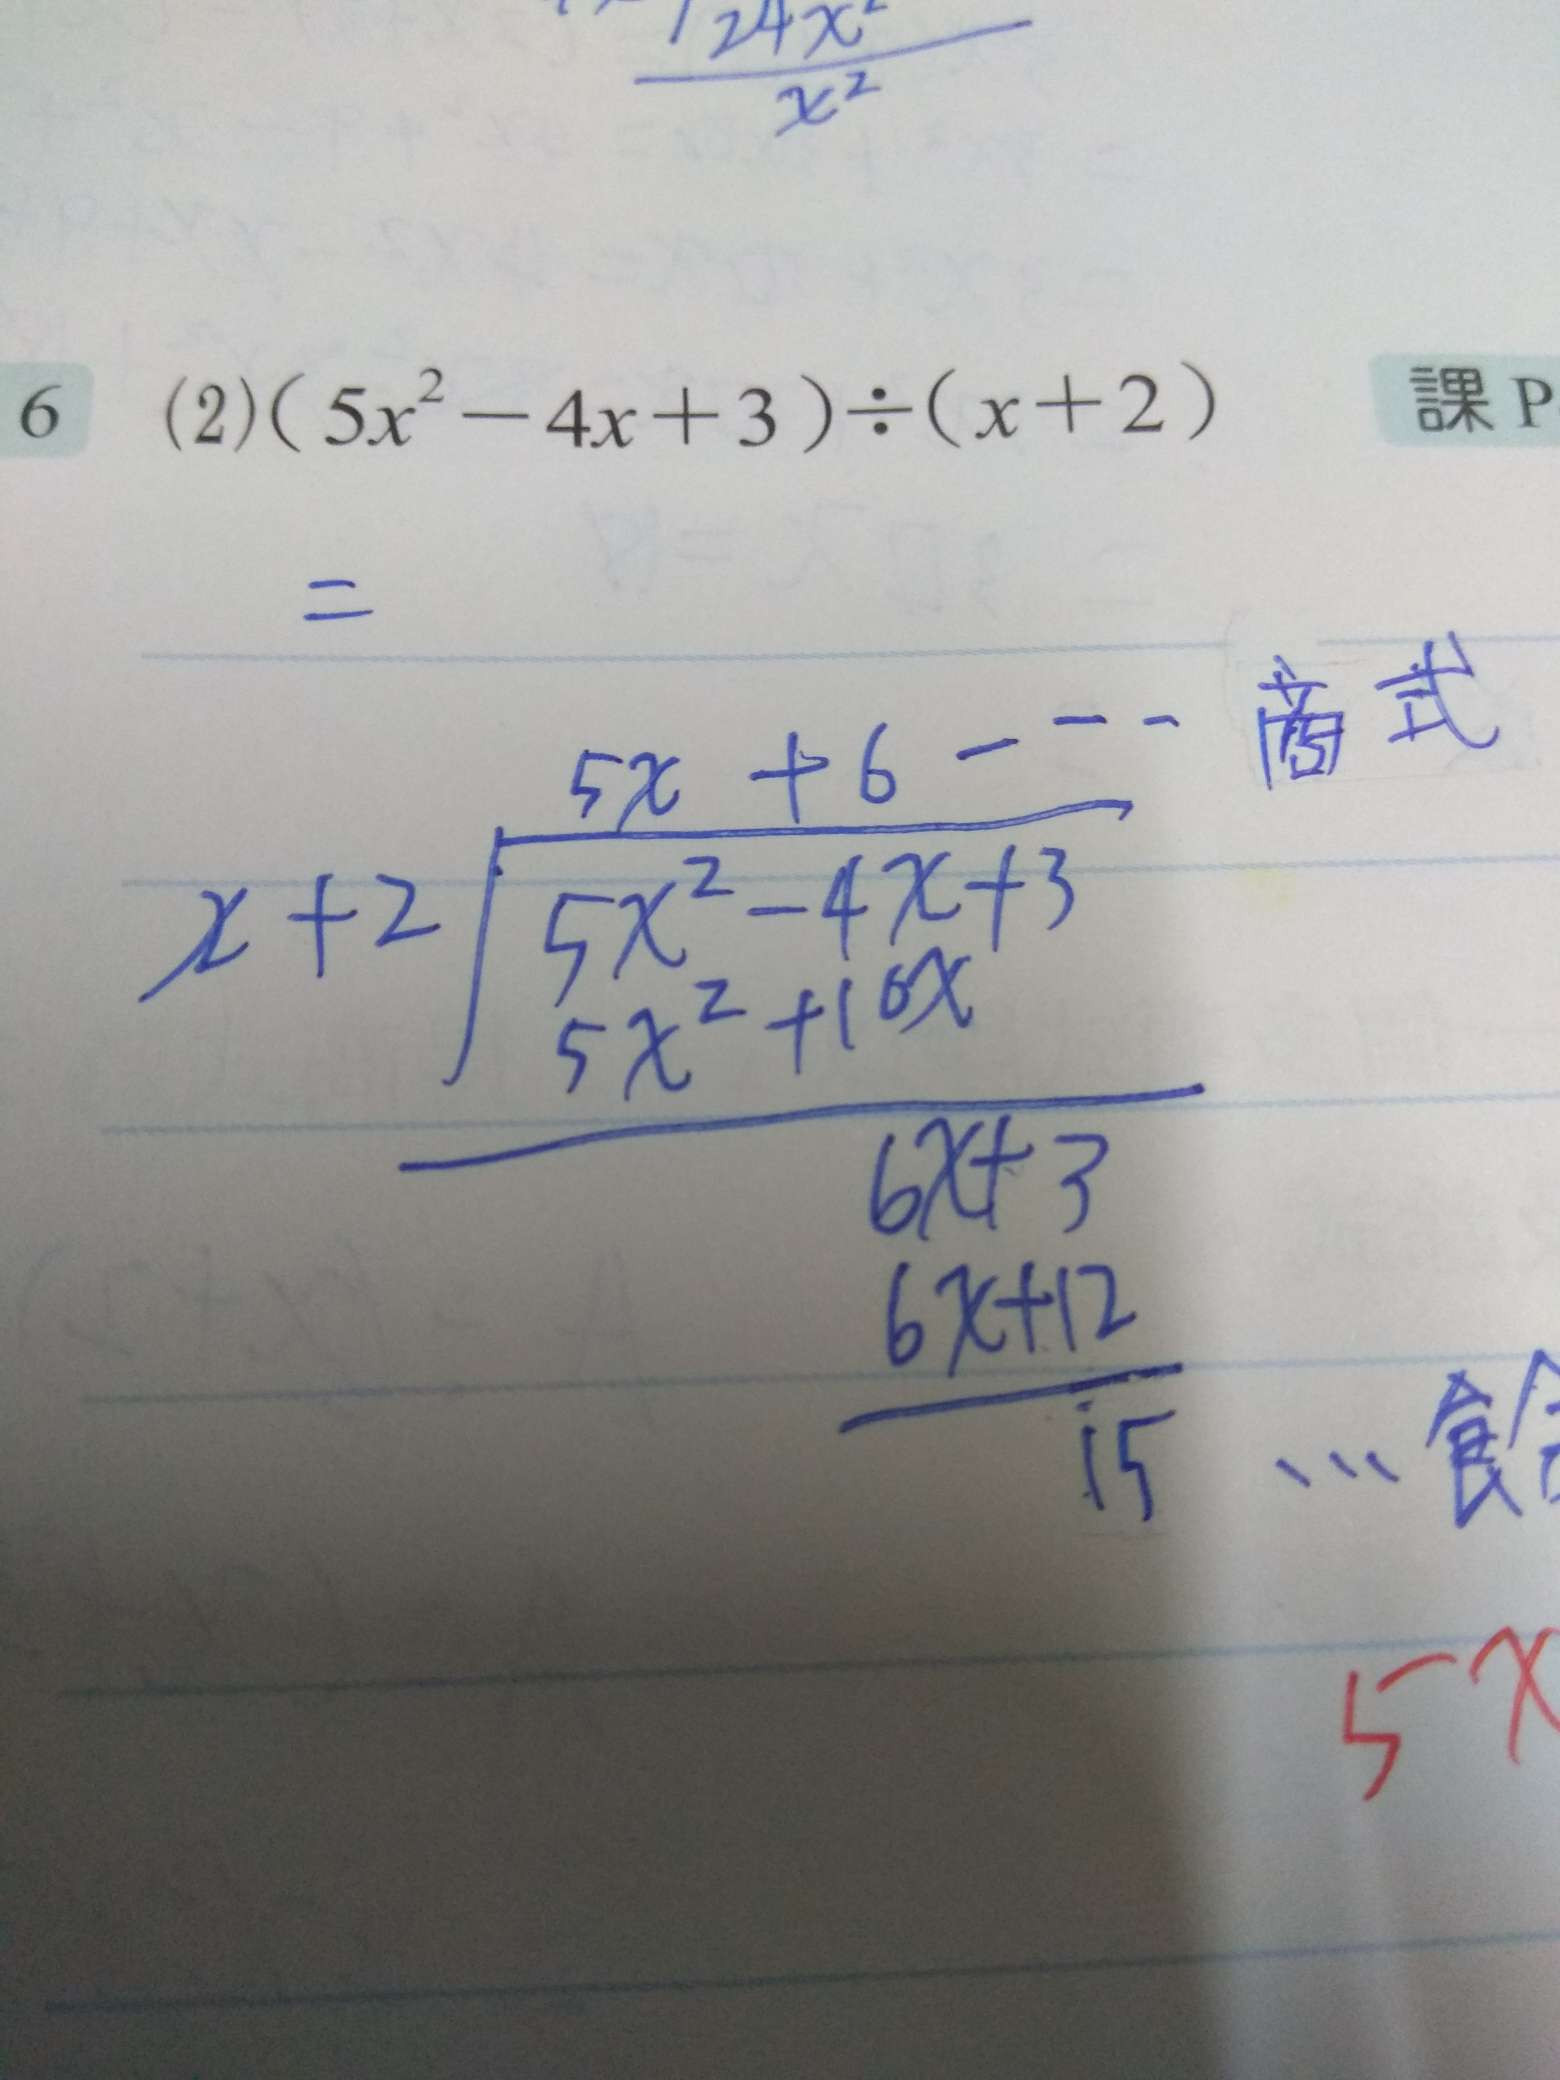 24x²
x²
6 (2)(5x²－4x＋3)÷(x＋2) 課P
=
5x + 6 - - - - 商式
x+2 5x²-4x+3
5x²+10x
6x+3
6x+12
15 ... 餘
5x